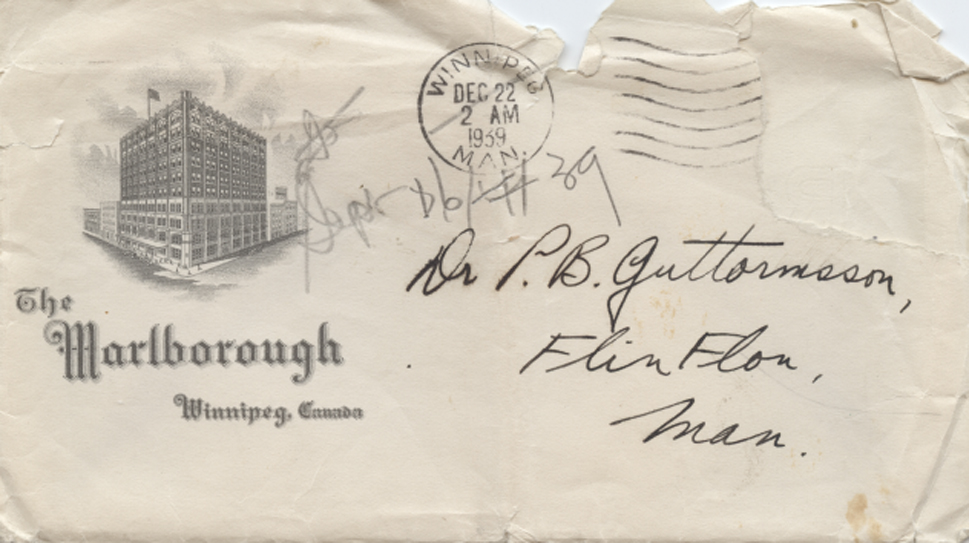 WINNIPEG
DEC 22
2 AM
1939
MAN.
The
Marlborough
Winnipeg, Canada
Dr P. B. Guttormsson,
Flin Flon,
Man.